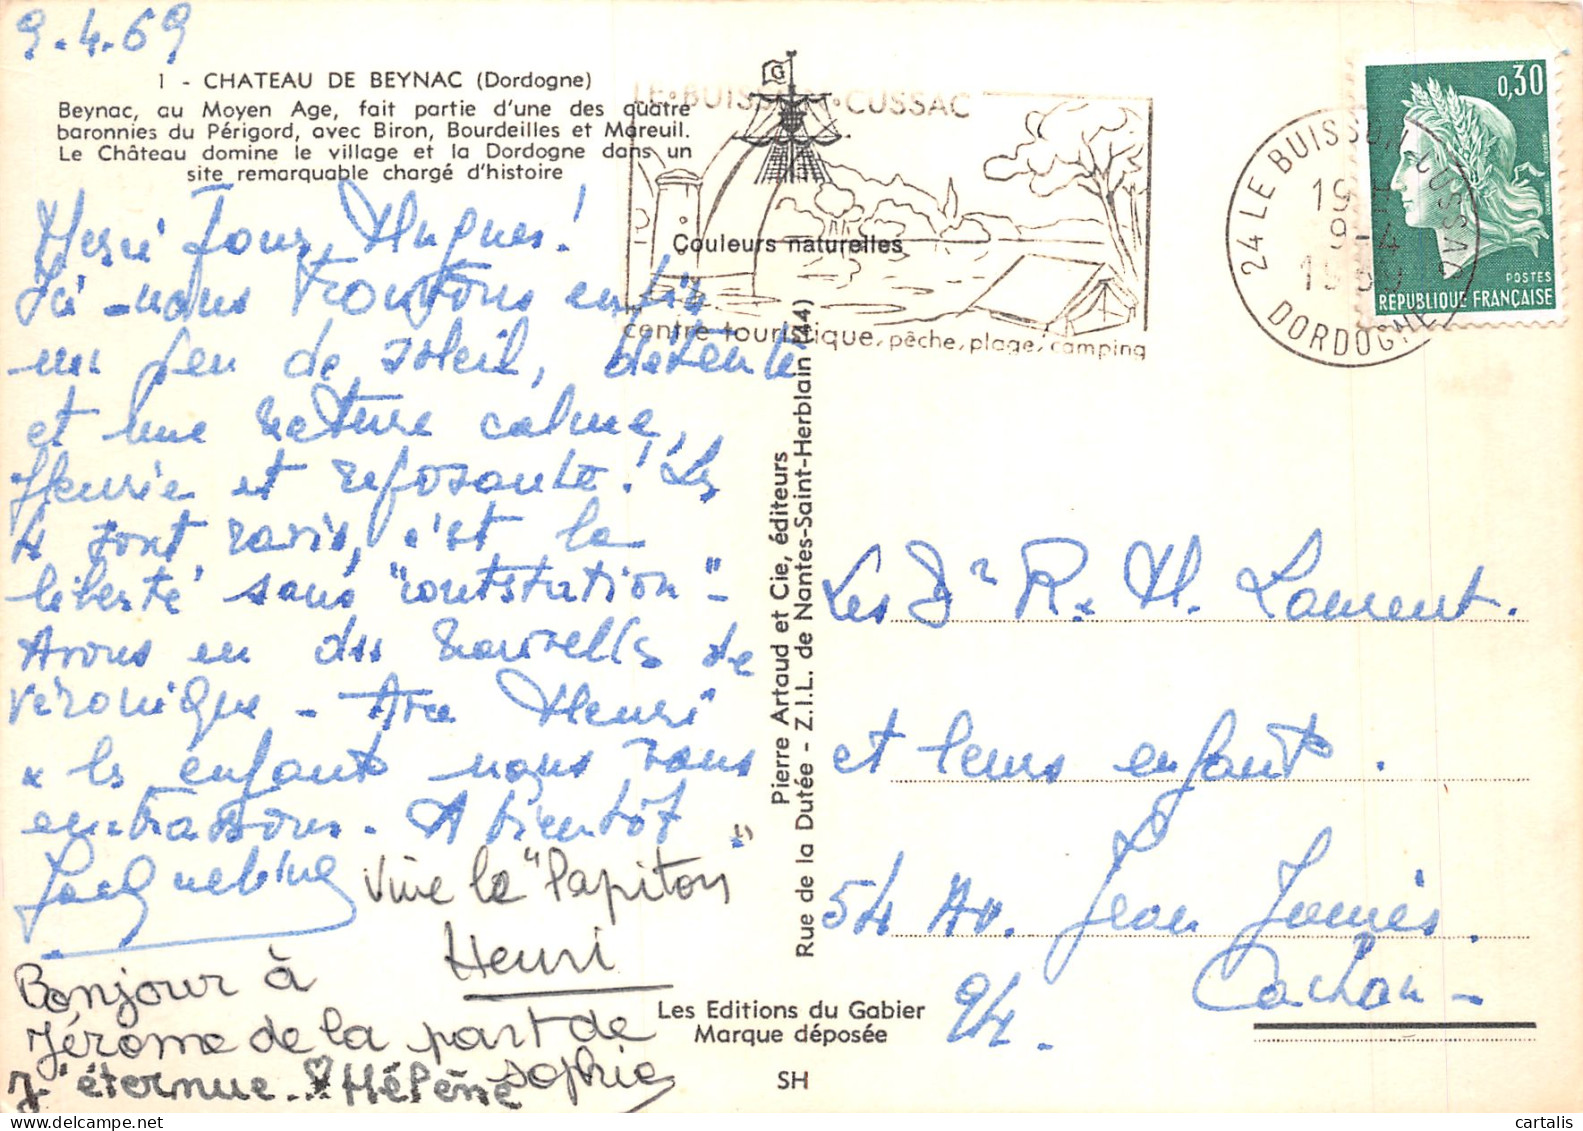 9.4.69
1 - CHATEAU DE BEYNAC (Dordogne)
Beynac, au Moyen Age, fait partie d'une des quatre
baronnies du Périgord, avec Biron, Bourdeilles et Mareuil.
Le Château domine le village et la Dordogne dans un
site remarquable chargé d'histoire
Merci Hugues!
Ici - nous trouvons enfin
un peu de soleil, détente
et une nature calme,
fleurie et reposante! Les
4 sont ravis, c'est la
liberté sans "contstation" -
Avons eu des nouvelles de
Véronique - Avec Henri
x les enfants nous vous
embrassons. A bientôt
Jacqueline
Vive le "Papiton"
Henri
Bonjour à
Jérome de la part de
sophie
J'éternue... Hélène
G
LE BUISSON-CUSSAC
Couleurs naturelles
centre touristique, pêche, plage, camping
24 LE BUISSON CUSSAC
19
9-4
1969
DORDOGNE
0,30
POSTES
REPUBLIQUE FRANÇAISE
Pierre Artaud et Cie, éditeurs
Rue de la Dutée - Z.I.L. de Nantes-Saint-Herblain (44)
Les Dr R. H. Laurent.
et leurs enfants.
54 Av. Jean Jaurès.
94. Cachan -
Les Editions du Gabier
Marque déposée
SH
cartalis